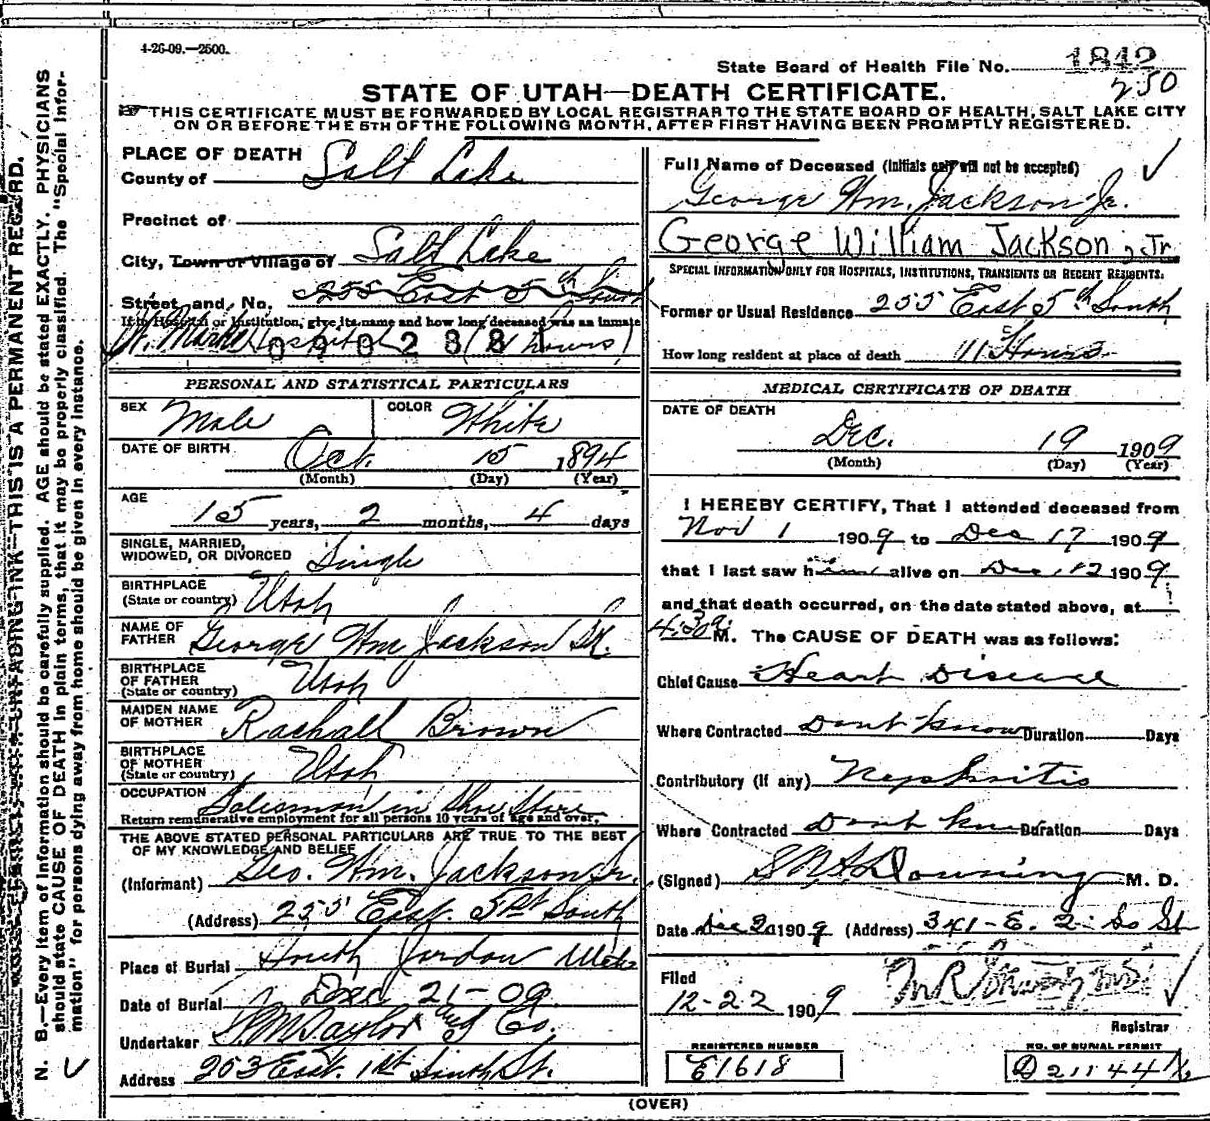 4-26-09.—2500.
State Board of Health File No. 1842
250
STATE OF UTAH—DEATH CERTIFICATE.
THIS CERTIFICATE MUST BE FORWARDED BY LOCAL REGISTRAR TO THE STATE BOARD OF HEALTH, SALT LAKE CITY
ON OR BEFORE THE 5TH OF THE FOLLOWING MONTH, AFTER FIRST HAVING BEEN PROMPTLY REGISTERED.
N. B.—Every item of information should be carefully supplied. AGE should be stated EXACTLY. PHYSICIANS
should state CAUSE OF DEATH in plain terms, that it may be properly classified. The "Special Infor-
mation" for persons dying away from home should be given in every instance.
THIS IS A PERMANENT RECORD.
PLACE OF DEATH
County of Salt Lake
Precinct of
City, Town or Village of Salt Lake
Street and No. 255 East 5th South
If in Hospital or Institution, give its name and how long deceased was an inmate
St. Marks Hospital (11 hours)
0902881
Full Name of Deceased (Initials only will not be accepted)
George Wm. Jackson Jr.
George William Jackson, Jr
SPECIAL INFORMATION ONLY FOR HOSPITALS, INSTITUTIONS, TRANSIENTS OR RECENT RESIDENTS.
Former or Usual Residence 255 East 5th South
How long resident at place of death 11 Hours
PERSONAL AND STATISTICAL PARTICULARS
SEX Male COLOR White
DATE OF BIRTH Oct. 15 1894
(Month) (Day) (Year)
AGE
15 years, 2 months, 4 days
SINGLE, MARRIED,
WIDOWED, OR DIVORCED Single
BIRTHPLACE
(State or country) Utah
NAME OF
FATHER George Wm Jackson Sr.
BIRTHPLACE
OF FATHER
(State or country) Utah
MAIDEN NAME
OF MOTHER Rachall Brown
BIRTHPLACE
OF MOTHER
(State or country) Utah
OCCUPATION Salesman in Shoe Store
Return remunerative employment for all persons 10 years of age and over.
THE ABOVE STATED PERSONAL PARTICULARS ARE TRUE TO THE BEST
OF MY KNOWLEDGE AND BELIEF
(Informant) Geo. Wm. Jackson Sr.
(Address) 255 East 5th South
Place of Burial South Jordan Utah
Date of Burial Dec 21-09
Undertaker S. M. Taylor Und Co.
Address 253 East. 1st South St.
MEDICAL CERTIFICATE OF DEATH
DATE OF DEATH
Dec. 19 1909
(Month) (Day) (Year)
I HEREBY CERTIFY, That I attended deceased from
Nov 1 1909 to Dec 17 1909
that I last saw him alive on Dec. 12 1909
and that death occurred, on the date stated above, at
4:30 a. M. The CAUSE OF DEATH was as follows:
Chief Cause Heart Disease
Where Contracted Dont know Duration Days
Contributory (if any) Nephritis
Where Contracted Dont know Duration Days
(Signed) Downing M. D.
Date Dec 20 1909 (Address) 341-E. 2 So St
Filed
12-22 1909
Registrar
REGISTERED NUMBER
E1618
NO. OF BURIAL PERMIT
D 21144½
(OVER)